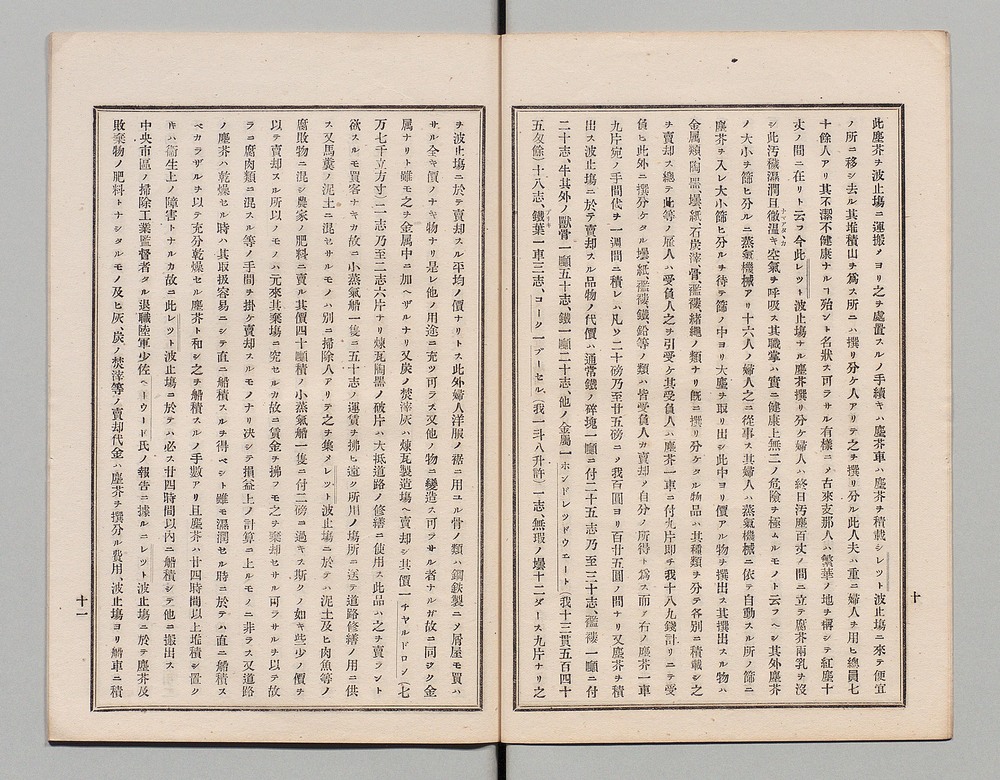 此塵芥ヲ波止塲ニ運搬メヨリ之ヲ處置スルノ手續キハ塵芥車ハ塵芥ヲ積載シレツト波止塲ニ來テ便宜
ノ所ニ移シ去ル其堆積山ヲ爲ス所ニハ撰リ分ケ人アリテ之ヲ撰リ分ル此人夫ハ重ニ婦人ヲ用ヒ總員七
十餘人アリ其不潔不健康ナルヿ殆ント名狀ス可ラサル有樣ニメ古來支那人ハ繁華ノ地ヲ稱シテ紅塵十
丈ノ間ニ在リト云フ今此レツト波止塲ナル塵芥撰リ分ケ婦人ハ終日汚塵百丈ノ間ニ立テ腐芥兩乳ヲ沒
シ此汚穢濕潤且微溫キ空氣ヲ呼吸ス其職掌ハ實ニ健康上無二ノ危險ヲ極ムルモノト云フヘシ其外塵芥
ノ大小ヲ篩ヒ分ルニ蒸氣機械アリ十六人ノ婦人之ニ從事ス其婦人ハ蒸氣機械ニ依テ自動スル所ノ篩ニ
塵芥ヲ入レ大小篩ヒ分ルヲ待テ篩ノ中ヨリ大塵ヲ取リ出シ此中ヨリ價アル物ヲ撰出ス其撰出スル物ハ
金屬類、陶器、壜、紙、石炭滓、骨、襤褸、緒繩ノ類ナリ旣ニ撰リ分ケタル物品ハ其種類ヲ分テ各別ニ積載シ之
ヲ賣却ス總テ此等ノ雇人ハ受負人之ヲ引受ケ其受負人ハ塵芥一車ニ付九片即チ我十八九錢計リニテ受
負ヒ此外ニ撰分ケタル壜、紙、襤褸、鐵、鉛等ノ類ハ皆受負人カ賣却メ自分ノ所得ト爲ス而メ右ノ塵芥一車
九片宛ノ手間代ヲ一週間ニ積レハ凡ソ二十磅乃至廿五磅ニメ我百圓ヨリ百廿五圓ノ間ナリ又塵芥ヲ積
出ス波止塲ニ於テ賣却スル品物ノ代價ハ通常鐵ノ碎塊一噸ニ付二十五志乃至三十志、襤褸一噸ニ付
二十志、牛其外ノ獸骨一噸五十志、鐵一噸二十志、他ノ金屬一ホンドレツドウェート（我十三貫五百四十
五匁餘）十八志、鐵葉一車三志、コーク一ブーセル、（我一斗八升許）一志、無瑕ノ壜十二ダース九片ナリ之
十
ヲ波止塲ニ於テ賣却スル平均ノ價ナリトス此外婦人洋服ノ裾ニ用ユル骨ノ類ハ鋼鉄製ニメ屑屋モ買ハ
サル全キ價ノナキ物ナリ是レ他ノ用途ニ充ツ可ラス又他ノ物ニ變造ス可ラサル者ナルガ故ニ同シク金
属ナリト雖モ之ヲ金属中ニ加ヘザルナリ又炭ノ焚滓灰ハ煉瓦製造塲ヘ賣却シ其價一チヤルドロン（七
万七千立方寸）二志乃至二志六片ナリ煉瓦陶器ノ破片ハ大抵道路ノ修繕ニ使用ス此品ハ之ヲ賣ラント
欲スルモ買客ナキカ故ニ小蒸氣船一隻ニ五十志ノ運賃ヲ拂ヒ遠ク所用ノ塲所ニ送テ道路修繕ノ用ニ供
ス又馬糞ノ泥土ニ混セサルモノハ別ニ掃除人アリテ之ヲ集メレツト波止塲ニ於テハ泥土及ヒ肉魚等ノ
腐敗物ニ混シ農家ノ肥料ニ賣ル其價四十噸積ノ小蒸氣船一隻ニ付二磅ニ過キス斯クノ如キ些少ノ價ヲ
以テ賣却スル所以ノモノハ元來其棄塲ニ究セルカ故ニ賃金ヲ拂フモ之ヲ棄却セサル可ラサルヲ以テ故
ラニ腐肉類ニ混スル等ノ手間ヲ掛ケ賣却スルモノナリ决シテ損益上ノ計算ニ上ルモノニ非ラス又道路
ノ塵芥ハ乾燥セル時ハ其取扱容易ニシテ直ニ船積スルヲ得ベシト雖モ濕潤セル時ニ於テハ直ニ船積ス
ベカラザルヲ以テ充分乾燥セル塵芥ト和シ之ヲ船積スルノ手數アリ且塵芥ハ廿四時間以上堆積シ置ク
片ハ衞生上ノ障害トナルカ故ニ此レツト波止塲ニ於テハ必ス廿四時間以內ニ船積シテ他ニ搬出ス
中央市區ノ掃除工業監督者タル退職陸軍少佐ヘーウード氏ノ報告ニ據ルニレツト波止塲ニ於テ塵芥及
敗棄物ノ肥料トナシタルモノ及ヒ灰、炭ノ焚滓等ノ賣却代金ハ塵芥ヲ撰分ル費用、波止塲ヨリ船車ニ積
十一